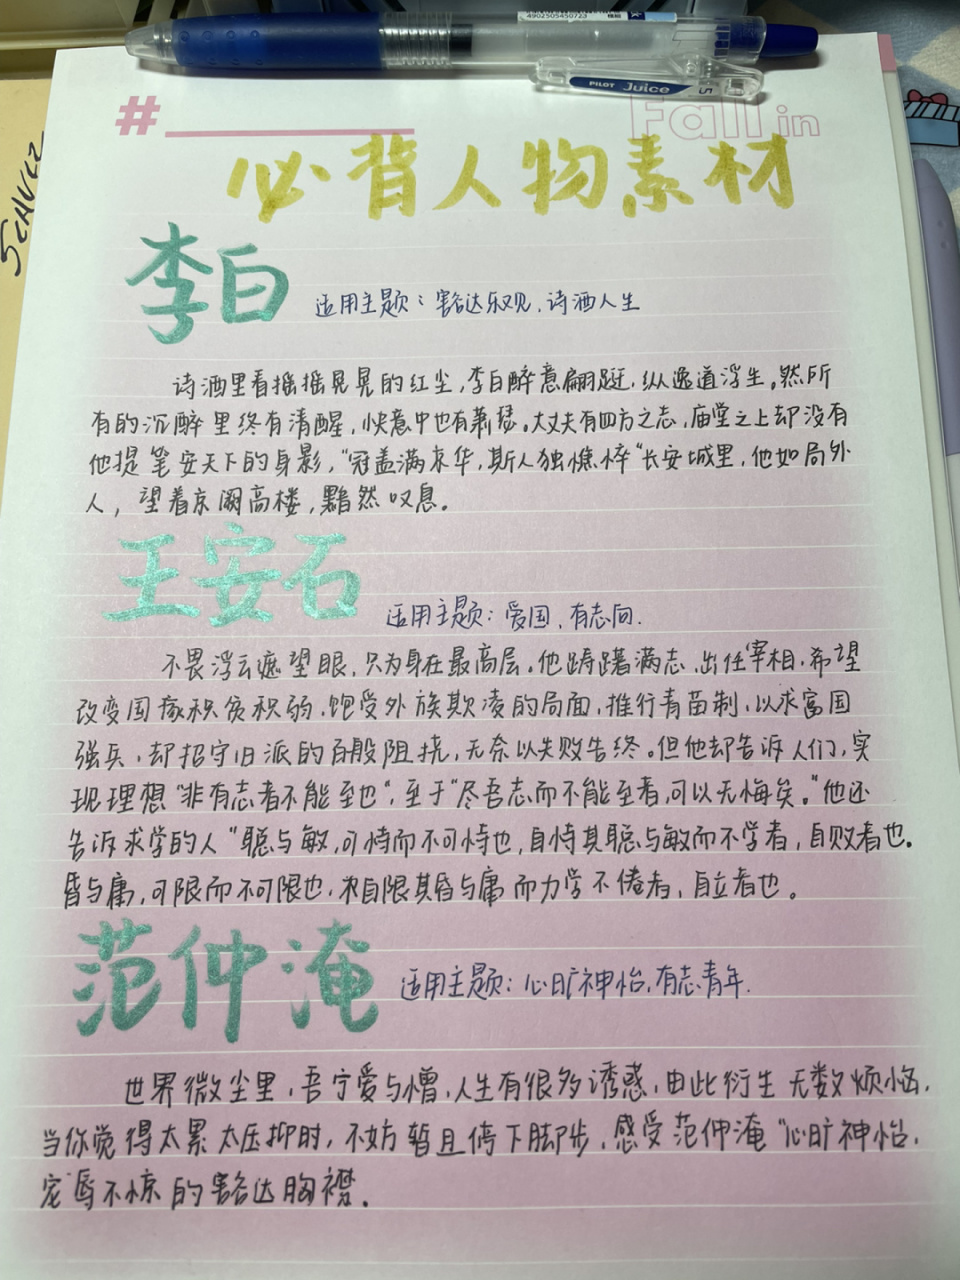 4902505450723
PILOT Juice
5
#
Fall in
必背人物素材
李白
适用主题：豁达乐观、诗酒人生
诗酒里看摇摇晃晃的红尘，李白醉意翩跹，纵逸道浮生。然所
有的沉醉里终有清醒，快意中也有萧瑟。大丈夫有四方之志，庙堂之上却没有
他提笔安天下的身影，“冠盖满京华，斯人独憔悴”长安城里，他如局外
人，望着京阙高楼，黯然叹息。
王安石
适用主题：爱国、有志向.
不畏浮云遮望眼，只为身在最高层。他踌躇满志，出任宰相，希望
改变国家积贫积弱、饱受外族欺凌的局面，推行青苗制，以求富国
强兵，却招守旧派的百般阻挠，无奈以失败告终。但他却告诉人们，实
现理想“非有志者不能至也”，至于“尽吾志而不能至者，可以无悔矣。”他还
告诉求学的人“聪与敏，可恃而不可恃也，自恃其聪与敏而不学者，自败者也。
昏与庸，可限而不可限也，不自限其昏与庸而力学不倦者，自立者也。
范仲淹
适用主题：心旷神怡，有志青年.
世界微尘里，吾宁爱与憎，人生有很多诱惑，由此衍生无数烦恼，
当你觉得太累太压抑时，不妨暂且停下脚步，感受范仲淹“心旷神怡，
宠辱不惊的豁达胸襟。